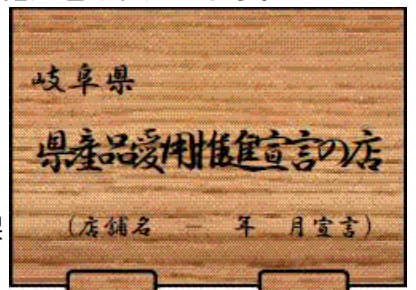 岐阜県
県産品愛用推進宣言の店
(店舗名 － 年 月宣言)